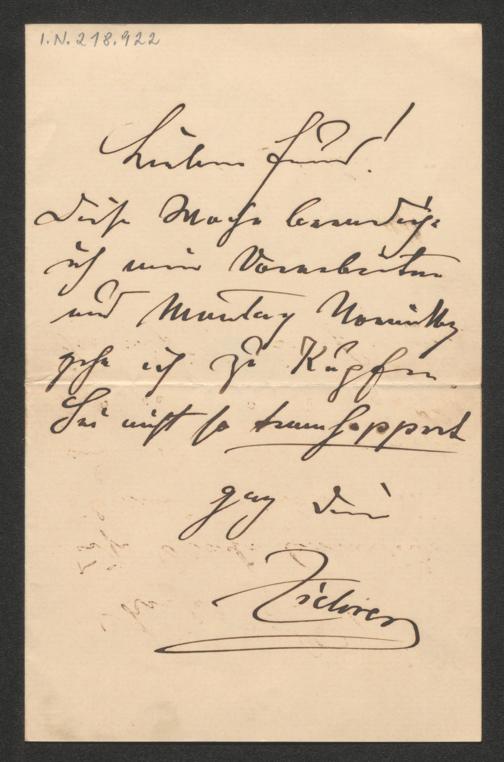 I.N. 218.922
Lieber Freund!
Diese Woche beendige
ich meine Vorarbeiten
und Montag Vormittag
gehe ich zu
Sei nicht so
ganz Dein